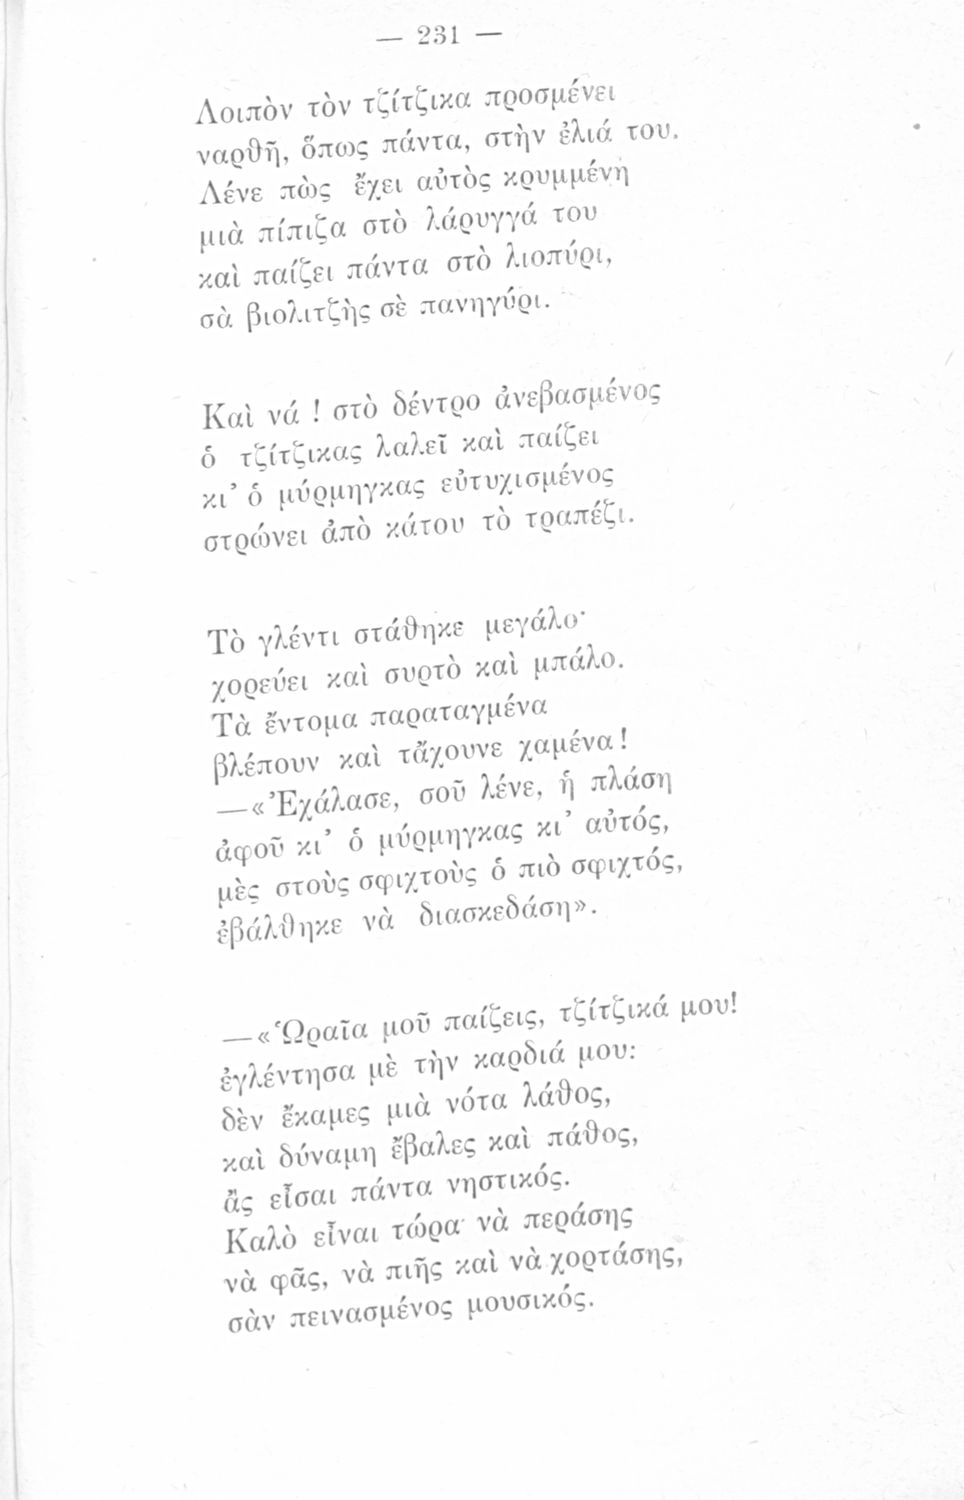 — 231 —
Λοιπὸν τὸν τζίτζικα προσμένει
ναρθῆ, ὅπως πάντα, στὴν ἐλιά του.
Λένε πὼς ἔχει αὐτὸς κρυμμένη
μιὰ πίπιζα στὸ λάρυγγά του
καὶ παίζει πάντα στὸ λιοπύρι,
σὰ βιολιτζὴς σὲ πανηγύρι.
Καὶ νά ! στὸ δέντρο ἀνεβασμένος
ὁ τζίτζικας λαλεῖ καὶ παίζει
κι’ ὁ μύρμηγκας εὐτυχισμένος
στρώνει ἀπὸ κάτου τὸ τραπέζι.
Τὸ γλέντι στάθηκε μεγάλο·
χορεύει καὶ συρτὸ καὶ μπάλο.
Τὰ ἔντομα παραταγμένα
βλέπουν καὶ τἄχουνε χαμένα!
—«Ἐχάλασε, σοῦ λένε, ἡ πλάση
ἀφοῦ κι’ ὁ μύρμηγκας κι’ αὐτός,
μὲς στοὺς σφιχτοὺς ὁ πιὸ σφιχτός,
ἐβάλθηκε νὰ διασκεδάση».
—«Ὡραῖα μοῦ παίζεις, τζίτζικά μου!
ἐγλέντησα μὲ τὴν καρδιά μου:
δὲν ἔκαμες μιὰ νότα λάθος,
καὶ δύναμη ἔβαλες καὶ πάθος,
ἂς εἶσαι πάντα νηστικός.
Καλὸ εἶναι τώρα νὰ περάσης
νὰ φᾶς, νὰ πιῆς καὶ νὰ χορτάσης,
σὰν πεινασμένος μουσικός.